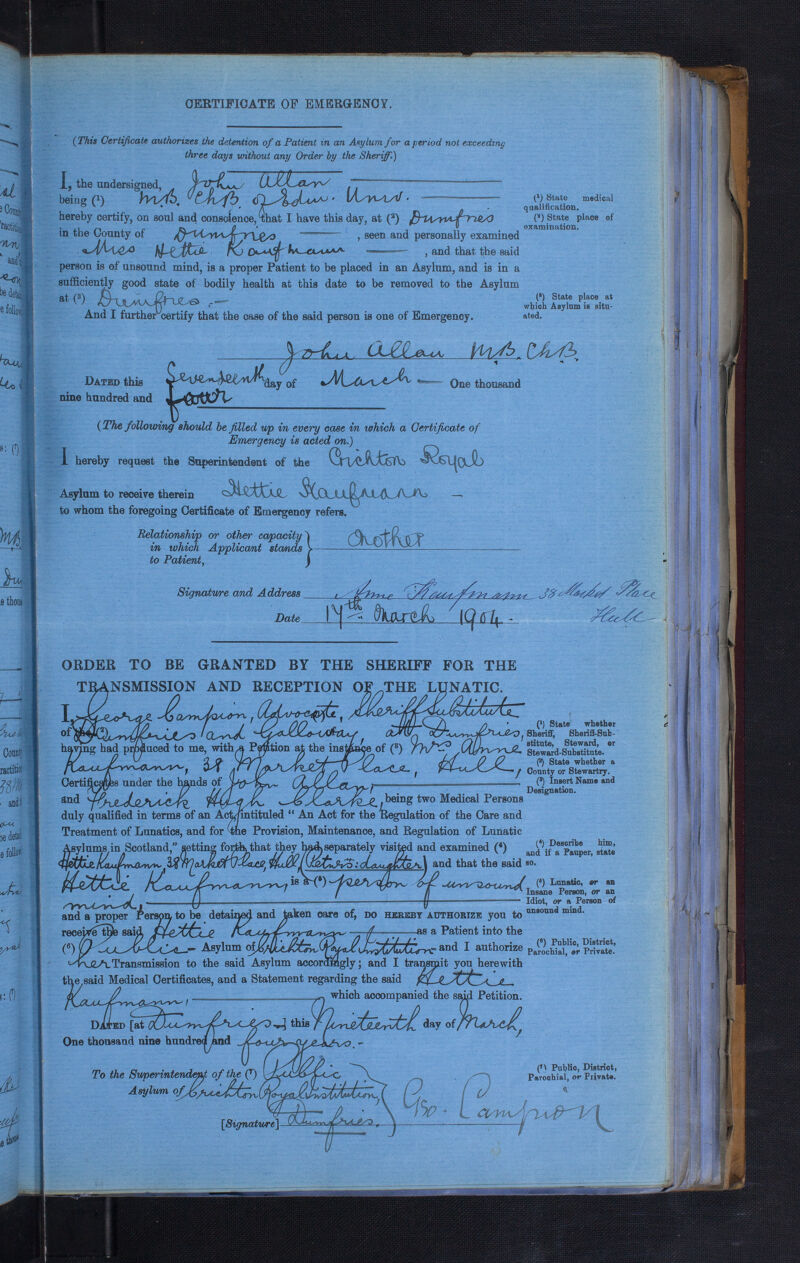 CERTIFICATE OF EMERGENCY.
(This Certificate authorizes the detention of a Patient in an Asylum for a period not exceeding
three days without any Order by the Sheriff.)
I, the undersigned, John Allan
being (¹) M.B. Ch.B. of Edin. Univ.
hereby certify, on soul and conscience, that I have this day, at (²) Dumfries
in the County of Dumfries , seen and personally examined
Miss Hettie Kaufmann , and that the said
person is of unsound mind, is a proper Patient to be placed in an Asylum, and is in a
sufficiently good state of bodily health at this date to be removed to the Asylum
at (³) Dumfries .—
And I further certify that the case of the said person is one of Emergency.
(¹) State medical
qualification.
(²) State place of
examination.
(³) State place at
which Asylum is situ-
ated.
John Allan M.B. Ch.B.
DATED this Seventeenth day of March — One thousand
nine hundred and four
(The following should be filled up in every case in which a Certificate of
Emergency is acted on.)
I hereby request the Superintendent of the Crichton Royal
Asylum to receive therein Hettie Kaufmann —
to whom the foregoing Certificate of Emergency refers.
Relationship or other capacity
in which Applicant stands
to Patient,
Mother
Signature and Address Anne Kaufmann 38 Market Place
Hull
Date 17th March 1904.
ORDER TO BE GRANTED BY THE SHERIFF FOR THE
TRANSMISSION AND RECEPTION OF THE LUNATIC.
I, George Campion, Advocate, Sheriff Substitute
of Dumfries and Galloway, at Dumfries,
having had produced to me, with a Petition at the instance of (³) Mrs Anne
Kaufmann, 38 Market Place, Hull,
Certificates under the hands of John Allan,
and Frederick Hugh Clarke, being two Medical Persons
duly qualified in terms of an Act, intituled "An Act for the Regulation of the Care and
Treatment of Lunatics, and for the Provision, Maintenance, and Regulation of Lunatic
Asylums in Scotland," setting forth that they had separately visited and examined (⁴)
Hettie Kaufmann, 38 Market Place, Hull (Petnr's: daughter) and that the said
Hettie Kaufmann, is a (⁵) person of unsound
mind,
and a proper Person to be detained and taken care of, DO HEREBY AUTHORIZE you to
receive the said Hettie Kaufmann as a Patient into the
(⁶) Public Asylum of Crichton Royal Institution and I authorize
her Transmission to the said Asylum accordingly; and I transmit you herewith
the said Medical Certificates, and a Statement regarding the said Hettie
Kaufmann, which accompanied the said Petition.
DATED [at Dumfries] this Nineteenth day of March,
One thousand nine hundred and four years.-
To the Superintendent of the (⁷) Public
Asylum of Crichton Royal Institution,
Dumfries.
[Signature] Geo. Campion
(¹) State whether
Sheriff, Sheriff-Sub-
stitute, Steward, or
Steward-Substitute.
(²) State whether a
County or Stewartry.
(³) Insert Name and
Designation.
(⁴) Describe him,
and if a Pauper, state
so.
(⁵) Lunatic, or an
Insane Person, or an
Idiot, or a Person of
unsound mind.
(⁶) Public, District,
Parochial, or Private.
(⁷) Public, District,
Parochial, or Private.